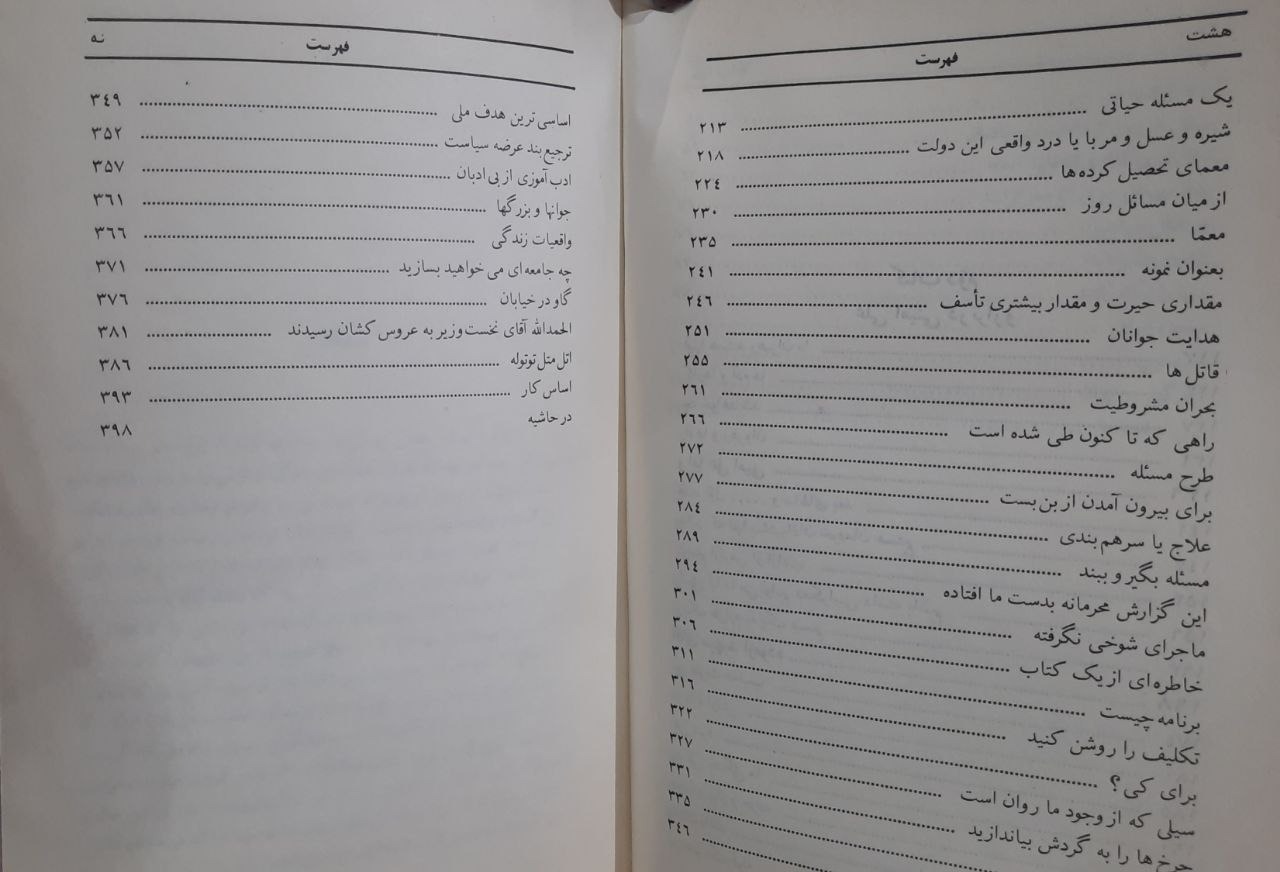 هشت
فهرست
یک مسئله حیاتی ........ ۲۱۳
شیره و عسل و مربا یا درد واقعی این دولت ........ ۲۱۸
معمای تحصیل کرده‌ها ........ ۲۲۴
از میان مسائل روز ........ ۲۳۰
معمّا ........ ۲۳۵
بعنوان نمونه ........ ۲۴۱
مقداری حیرت و مقدار بیشتری تأسف ........ ۲۴۶
هدایت جوانان ........ ۲۵۱
قاتل‌ها ........ ۲۵۵
بحران مشروطیت ........ ۲۶۱
راهی که تا کنون طی شده است ........ ۲۶۶
طرح مسئله ........ ۲۷۲
برای بیرون آمدن از بن‌بست ........ ۲۷۷
علاج یا سرهم‌بندی ........ ۲۸۴
مسئله بگیر و ببند ........ ۲۸۹
این گزارش محرمانه بدست ما افتاده ........ ۲۹۴
ماجرای شوخی نگرفته ........ ۳۰۱
خاطره‌ای از یک کتاب ........ ۳۰۶
برنامه چیست ........ ۳۱۱
تکلیف را روشن کنید ........ ۳۱۶
برای کی؟ ........ ۳۲۲
سیلی که از وجود ما روان است ........ ۳۲۷
چرخ‌ها را به گردش بیاندازید ........ ۳۳۱
........ ۳۳۵
........ ۳۴۶
فهرست
نه
اساسی‌ترین هدف ملی ........ ۳۴۹
ترجیع‌بند عرضه سیاست ........ ۳۵۲
ادب‌آموزی از بی‌ادبان ........ ۳۵۷
جوانها و بزرگها ........ ۳۶۱
واقعیات زندگی ........ ۳۶۶
چه جامعه‌ای می‌خواهید بسازید ........ ۳۷۱
گاو در خیابان ........ ۳۷۶
الحمدالله آقای نخست‌وزیر به عروس کشان رسیدند ........ ۳۸۱
اتل متل توتوله ........ ۳۸۶
اساس کار ........ ۳۹۳
در حاشیه ۳۹۸